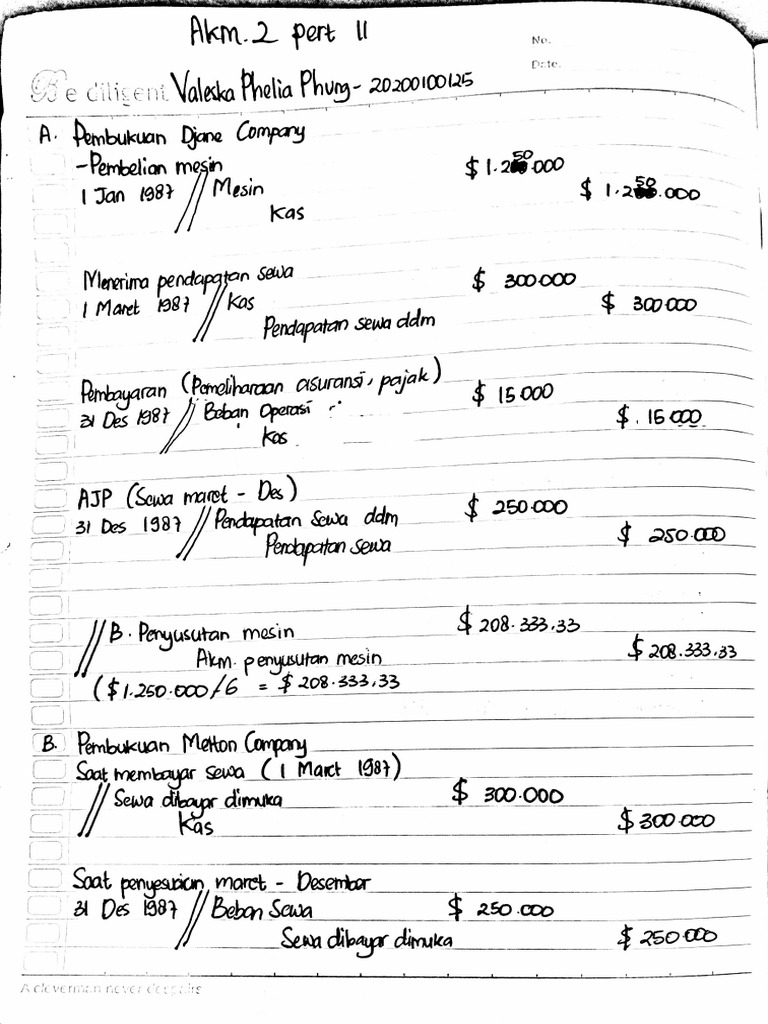 Akm. 2 pert 11
No.
Date.
Be diligent Valeska Phelia Phung - 20200100125
A. Pembukuan Djane Company
- Pembelian mesin $ 1.250.000
1 Jan 1987 // Mesin $ 1.250.000
Kas
Menerima pendapatan sewa $ 300.000
1 Maret 1987 // Kas $ 300.000
Pendapatan sewa ddm
Pembayaran (Pemeliharaan asuransi, pajak) $ 15.000
31 Des 1987 // Beban Operasi $ 15.000
Kas
AJP (Sewa maret - Des) $ 250.000
31 Des 1987 // Pendapatan Sewa ddm $ 250.000
Pendapatan sewa
// B. Penyusutan mesin $ 208.333,33
Akm. penyusutan mesin $ 208.333,33
($ 1.250.000 / 6 = $ 208.333,33
B. Pembukuan Metton Company
Saat membayar sewa (1 Maret 1987)
// Sewa dibayar dimuka $ 300.000
Kas $ 300.000
Saat penyesuaian maret - Desember
31 Des 1987 // Beban Sewa $ 250.000
Sewa dibayar dimuka $ 250.000
A cleverman never despairs